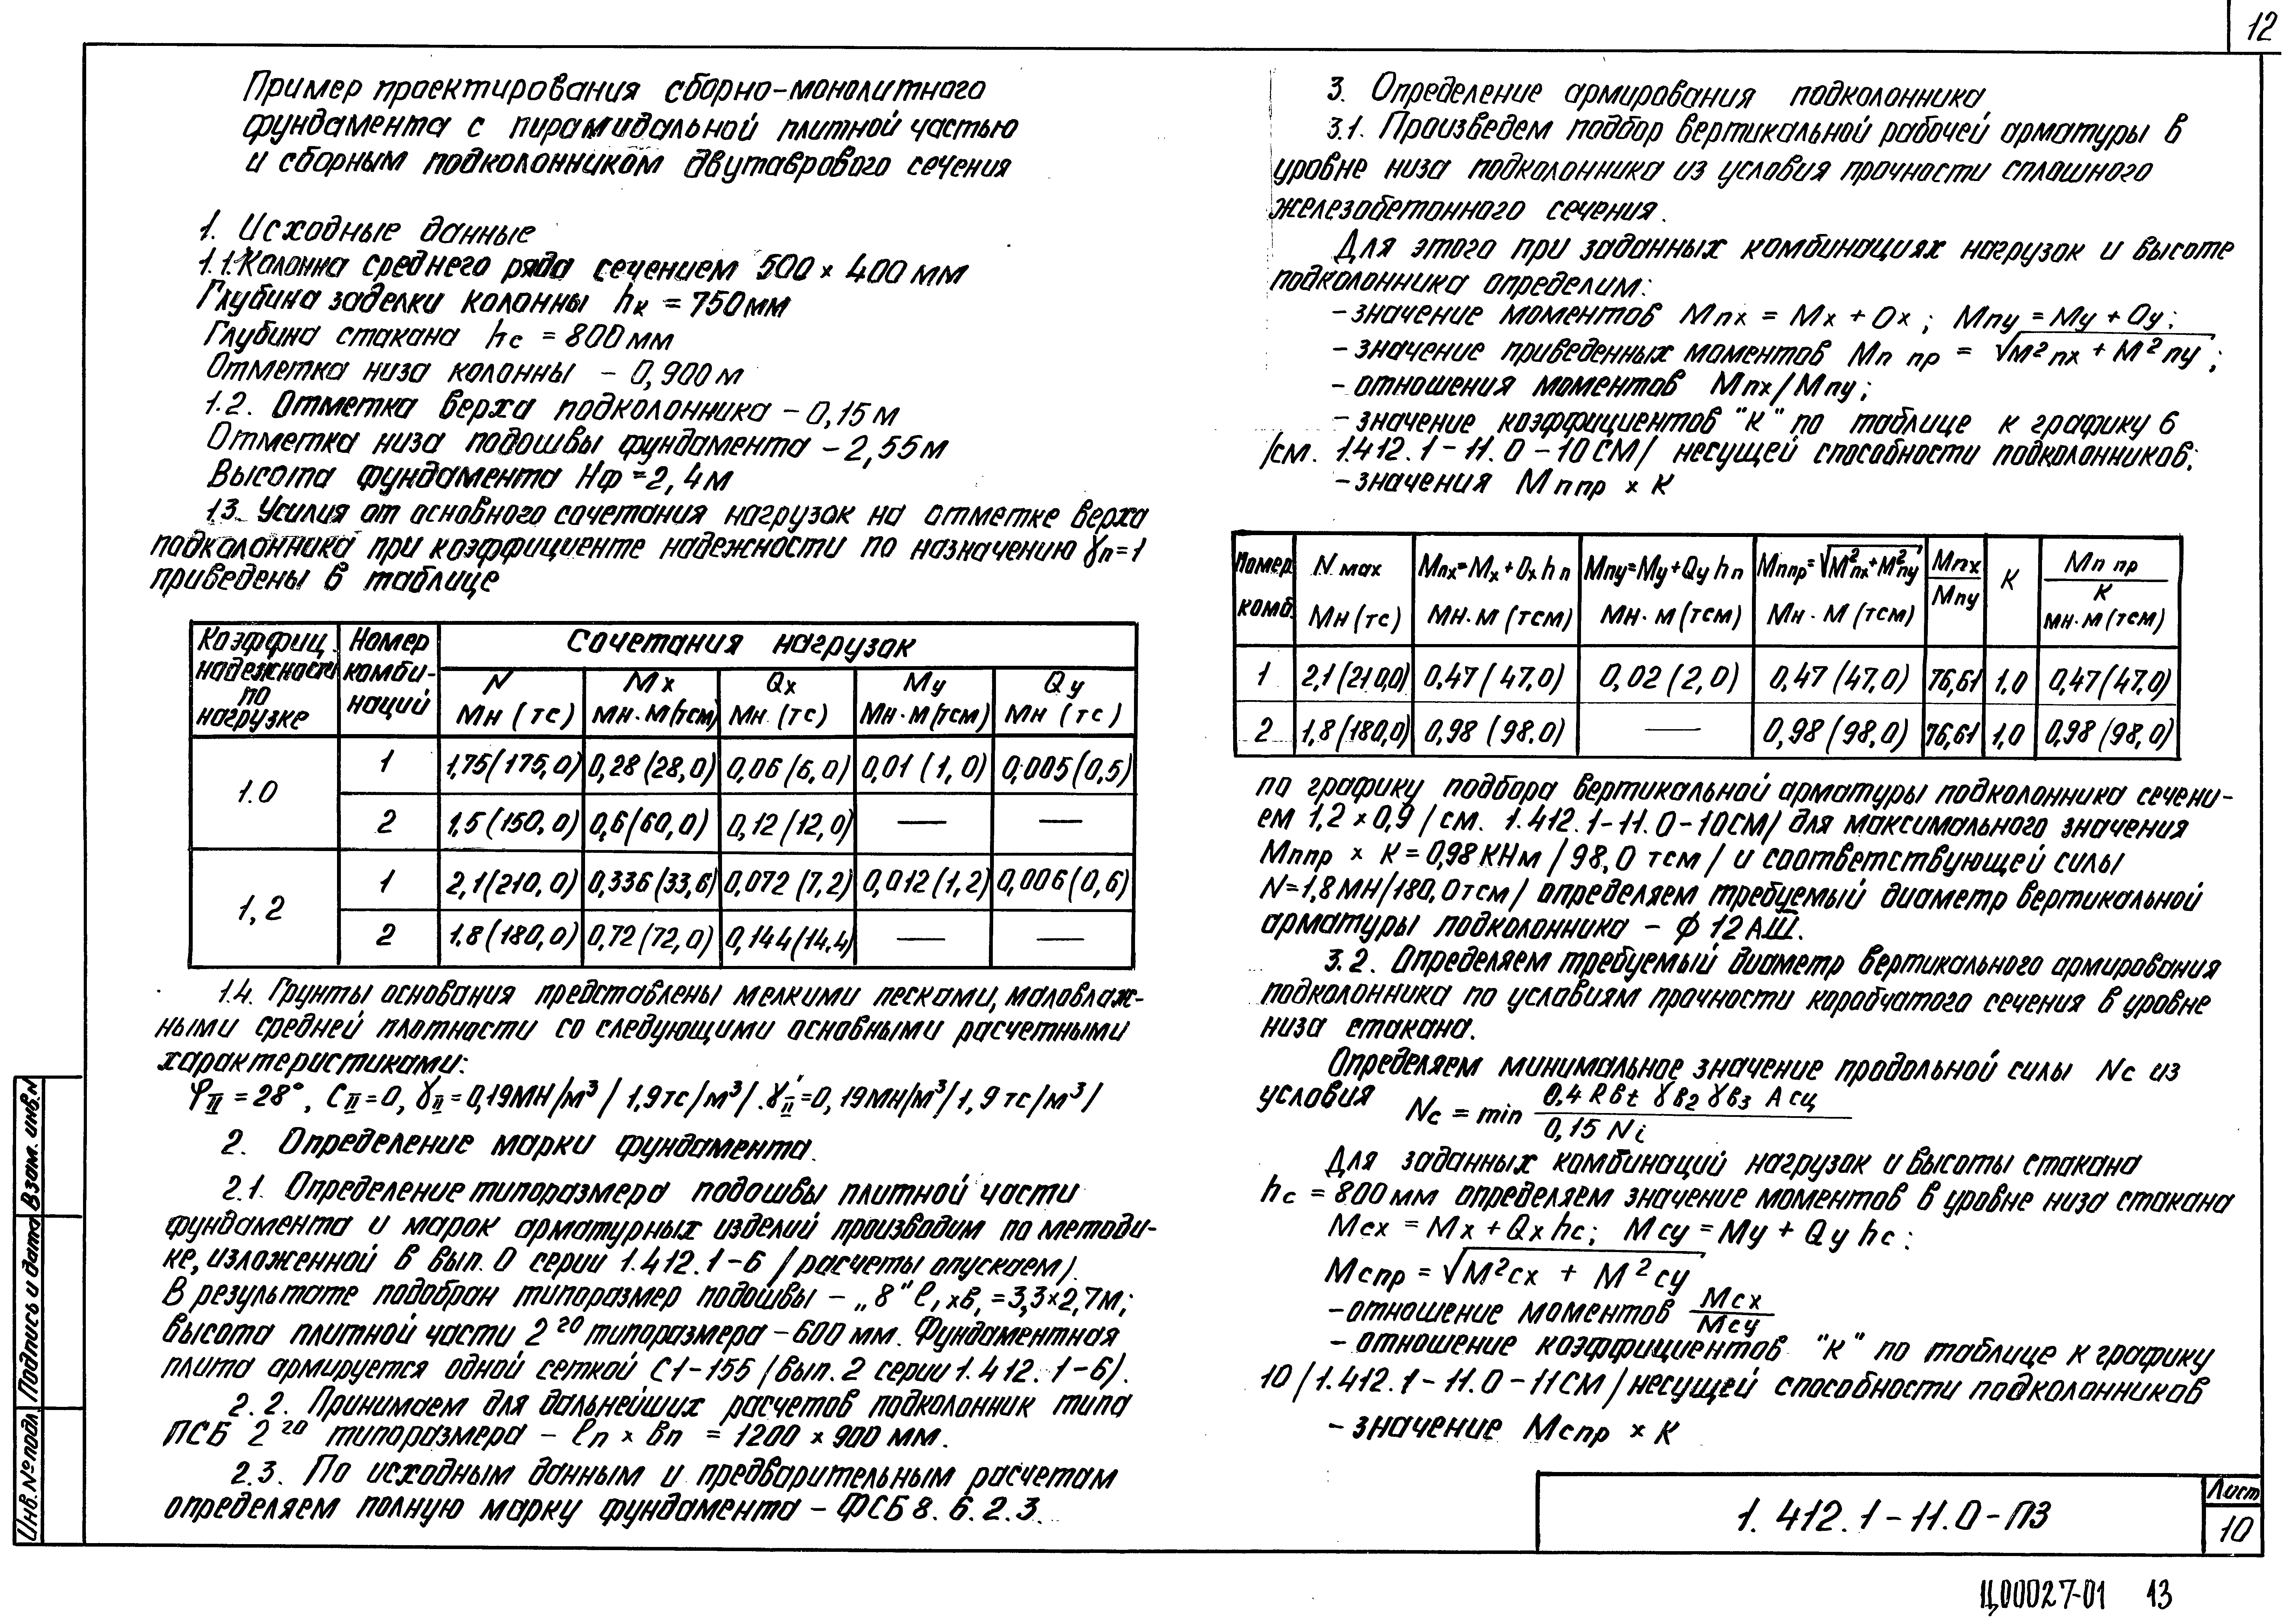 12
Пример проектирования сборно-монолитного
фундамента с пирамидальной плитной частью
и сборным подколонником двутаврового сечения
1. Исходные данные
1.1. Колонна среднего ряда сечением 500 × 400 мм
Глубина заделки колонны hк = 750 мм
Глубина стакана hс = 800 мм
Отметка низа колонны - 0,900 м
1.2. Отметка верха подколонника - 0,15 м
Отметка низа подошвы фундамента - 2,55 м
Высота фундамента Нф = 2,4 м
1.3. Усилия от основного сочетания нагрузок на отметке верха
подколонника при коэффициенте надежности по назначению γп=1
приведены в таблице
Коэффиц. надежности по нагрузке | Номер комбинаций | Сочетания нагрузок
N Мн (тс) | Мх Мн·м (тсм) | Qx Мн (тс) | Му Мн·м (тсм) | Qy Мн (тс)
1.0 | 1 | 1,75(175,0) | 0,28(28,0) | 0,06(6,0) | 0,01(1,0) | 0,005(0,5)
2 | 1,5(150,0) | 0,6(60,0) | 0,12(12,0) | — | —
1,2 | 1 | 2,1(210,0) | 0,336(33,6) | 0,072(7,2) | 0,012(1,2) | 0,006(0,6)
2 | 1,8(180,0) | 0,72(72,0) | 0,144(14,4) | — | —
1.4. Грунты основания представлены мелкими песками, маловлаж-
ными средней плотности со следующими основными расчетными
характеристиками:
φII = 28°, СII = 0, γII = 0,19МН/м³ / 1,9тс/м³/. γ'II = 0,19МН/м³/ 1,9 тс/м³/
2. Определение марки фундамента.
2.1. Определение типоразмера подошвы плитной части
фундамента и марок арматурных изделий производим по методи-
ке, изложенной в вып. 0 серии 1.412.1-6 /расчеты опускаем/.
В результате подобран типоразмер подошвы - „8" l₁×в₁ = 3,3×2,7м;
высота плитной части 2го типоразмера - 600 мм. Фундаментная
плита армируется одной сеткой С1-155 /вып. 2 серии 1.412.1-6/.
2.2. Принимаем для дальнейших расчетов подколонник типа
ПСБ 2го типоразмера - lп × вп = 1200 × 900 мм.
2.3. По исходным данным и предварительным расчетам
определяем полную марку фундамента - ФСБ 8.6.2.3.
3. Определение армирования подколонника
3.1. Произведем подбор вертикальной рабочей арматуры в
уровне низа подколонника из условия прочности сплошного
железобетонного сечения.
Для этого при заданных комбинациях нагрузок и высоте
подколонника определим:
- значение моментов Мпх = Мх + Ох ; Мпу = Му + Оу;
- значение приведенных моментов Мп пр = √М²пх + М²пу ;
- отношения моментов Мпх/Мпу;
- значение коэффициентов "К" по таблице к графику 6
/см. 1.412.1-11.0-10СМ/ несущей способности подколонников;
- значения Мппр × К
Номер комб. | N мах Мн (тс) | Мпх=Мх+Охhп Мн·м (тсм) | Мпу=Му+Qуhп Мн·м (тсм) | Мппр=√М²пх+М²пу Мн·м (тсм) | Мпх/Мпу | К | Мп пр/К мн·м (тсм)
1 | 2,1(210,0) | 0,47(47,0) | 0,02(2,0) | 0,47(47,0) | 76,61 | 1,0 | 0,47(47,0)
2 | 1,8(180,0) | 0,98(98.0) | — | 0,98(98,0) | 76,61 | 1,0 | 0,98(98,0)
по графику подбора вертикальной арматуры подколонника сечени-
ем 1,2 × 0,9 /см. 1.412.1-11.0-10СМ/ для максимального значения
Мппр × К = 0,98КНм /98,0 тсм/ и соответствующей силы
N=1,8МН/180,0тсм/ определяем требуемый диаметр вертикальной
арматуры подколонника - ф 12АIII.
3.2. Определяем требуемый диаметр вертикального армирования
подколонника по условиям прочности коробчатого сечения в уровне
низа стакана.
Определяем минимальное значение продольной силы Nс из
условия Nс = min 0,4 Rвt γв2 γв3 Асц / 0,15 Ni
Для заданных комбинаций нагрузок и высоты стакана
hс = 800мм определяем значение моментов в уровне низа стакана
Мсх = Мх + Qх hс; Мсу = Му + Qу hс:
Мспр = √М²сх + М²су
- отношение моментов Мсх/Мсу
- отношение коэффициентов "К" по таблице к графику
10 /1.412.1-11.0-11СМ/ несущей способности подколонников
- значение Мспр × К
Инв.№ подл. Подпись и дата Взам. инв.N
1.412.1-11.0-ПЗ
Лист
10
Ц00027-01 13